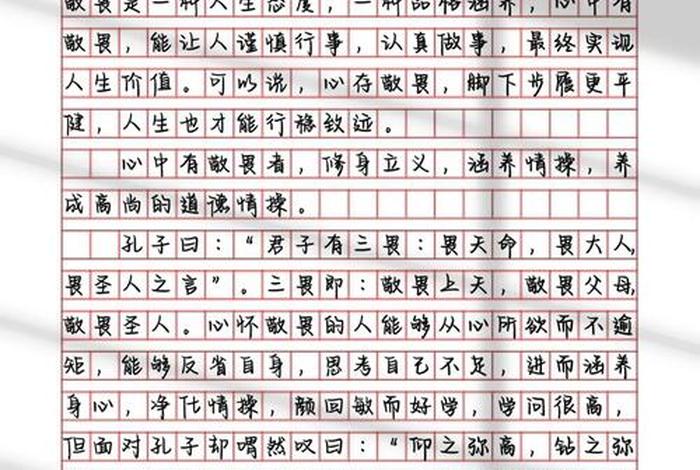 敬畏是一种人生态度，一种品格涵养，心中有
敬畏，能让人谨慎行事，认真做事，最终实现
人生价值。可以说，心存敬畏，脚下步履更平
健，人生也才能行稳致迹。
心中有敬畏者，修身立义，涵养情操，养
成高尚的道德情操。
孔子曰：“君子有三畏：畏天命，畏大人，
畏圣人之言”。三畏即：敬畏上天，敬畏父母，
敬畏圣人。心怀敬畏的人能够从心所欲而不逾
矩，能够反省自身，思考自己不足，进而涵养
身心，净化情操，颜回敏而好学，学问很高，
但面对孔子却喟然叹曰：“仰之弥高，钻之弥